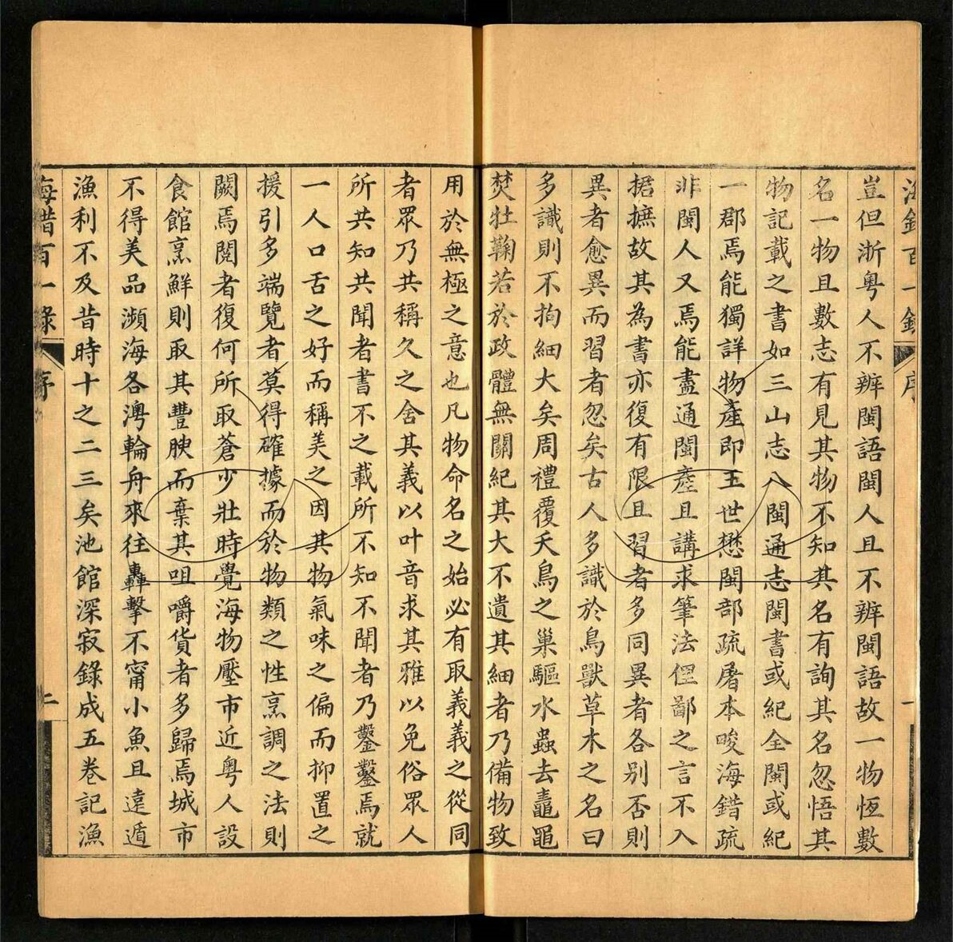 海錯百一錄 序 一
豈但浙粵人不辨閩語閩人且不辨閩語故一物恆數
名一物且數志有見其物不知其名有詢其名忽悟其
物記載之書如三山志八閩通志閩書或紀全閩或紀
一郡焉能獨詳物產即王世懋閩部疏屠本畯海錯疏
非閩人又焉能盡通閩產且講求筆法俚鄙之言不入
捃摭故其為書亦復有限且習者多同異者各別否則
異者愈異而習者忽矣古人多識於鳥獸草木之名曰
多識則不拘細大矣周禮覆夭鳥之巢驅水蟲去鼃黽
焚牡蘜若於政體無關紀其大不遺其細者乃備物致
用於無極之意也凡物命名之始必有取義義之從同
者眾乃共稱久之舍其義以叶音求其雅以免俗眾人
所共知共聞者書不之載所不知不聞者乃鑿鑿焉就
一人口舌之好而稱美之因其物氣味之偏而抑置之
援引多端覽者莫得確據而於物類之性烹調之法則
闕焉閱者復何所取蒼少壯時覺海物壓市近粵人設
食館烹鮮則取其豐腴而棄其咀嚼貨者多歸焉城市
不得美品瀕海各澳輪舟來往轟擊不甯小魚且遠遁
漁利不及昔時十之二三矣池館深寂錄成五卷記漁
海錯百一錄 序 二